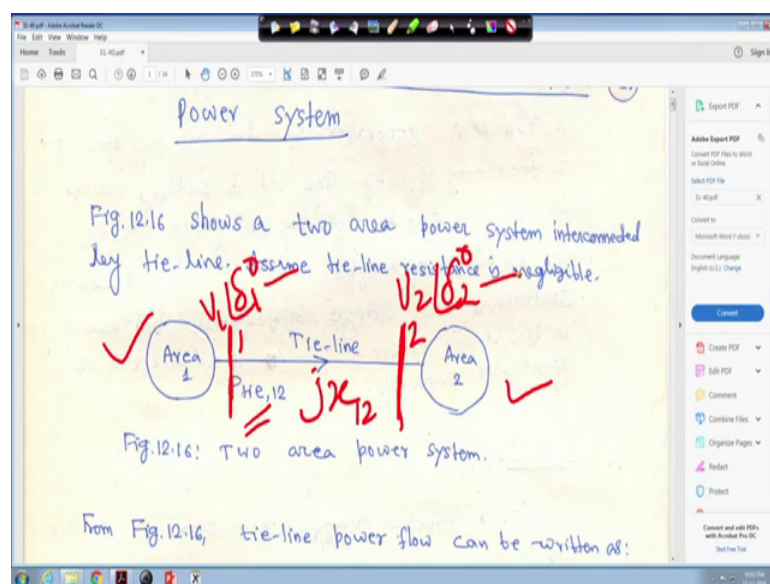 31-40.pdf - Adobe Acrobat Reader DC
File Edit View Window Help
Home Tools 31-40.pdf ×
Sign In
1 / 14 171%
Power system
Fig. 12.16 shows a two area power system interconnected
by tie-line. Assume tie-line resistance is negligible.
V1∠δ1° V2∠δ2°
1 Tie-line 2
Area 1
Area 2
Ptie,12 jx12
Fig. 12.16: Two area power system.
From Fig. 12.16, tie-line power flow can be written as:
Export PDF
Adobe Export PDF
Convert PDF Files to Word
or Excel Online
Select PDF File
31-40.pdf ×
Convert to
Microsoft Word (*.docx)
Document Language:
English (U.S.) Change
Convert
Create PDF
Edit PDF
Comment
Combine Files
Organize Pages
Redact
Protect
Convert and edit PDFs
with Acrobat Pro DC
Start Free Trial